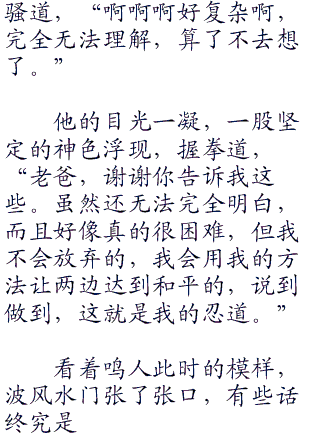 骚道，“啊啊啊好复杂啊，
完全无法理解，算了不去想
了。”
他的目光一凝，一股坚
定的神色浮现，握拳道，
“老爸，谢谢你告诉我这
些。虽然还无法完全明白，
而且好像真的很困难，但我
不会放弃的，我会用我的方
法让两边达到和平的，说到
做到，这就是我的忍道。”
看着鸣人此时的模样，
波风水门张了张口，有些话
终究是